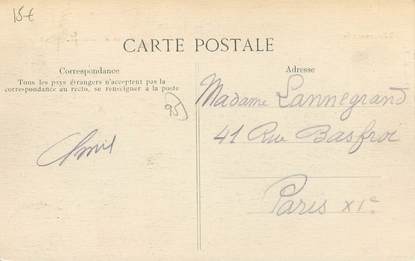 15€
CARTE POSTALE
Correspondance
Tous les pays étrangers n'acceptent pas la
correspondance au recto, se renseigner à la poste
95
Adresse
Madame Lannegrand
41 Rue Basfroi
Paris XIe